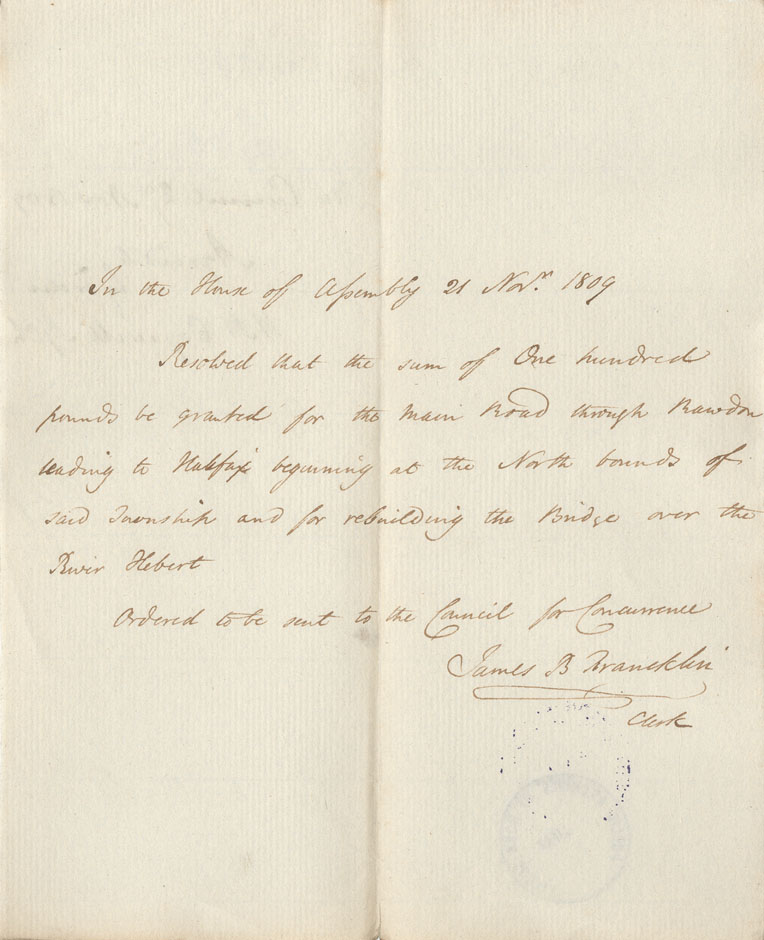 In the House of Assembly 21 Novr. 1809
Resolved that the sum of One hundred
pounds be granted for the Main Road through Rawdon
leading to Halifax beginning at the North bounds of
said Township and for rebuilding the Bridge over the
River Hebert
Ordered to be sent to the Council for Concurrence
James B Francklin
Clerk